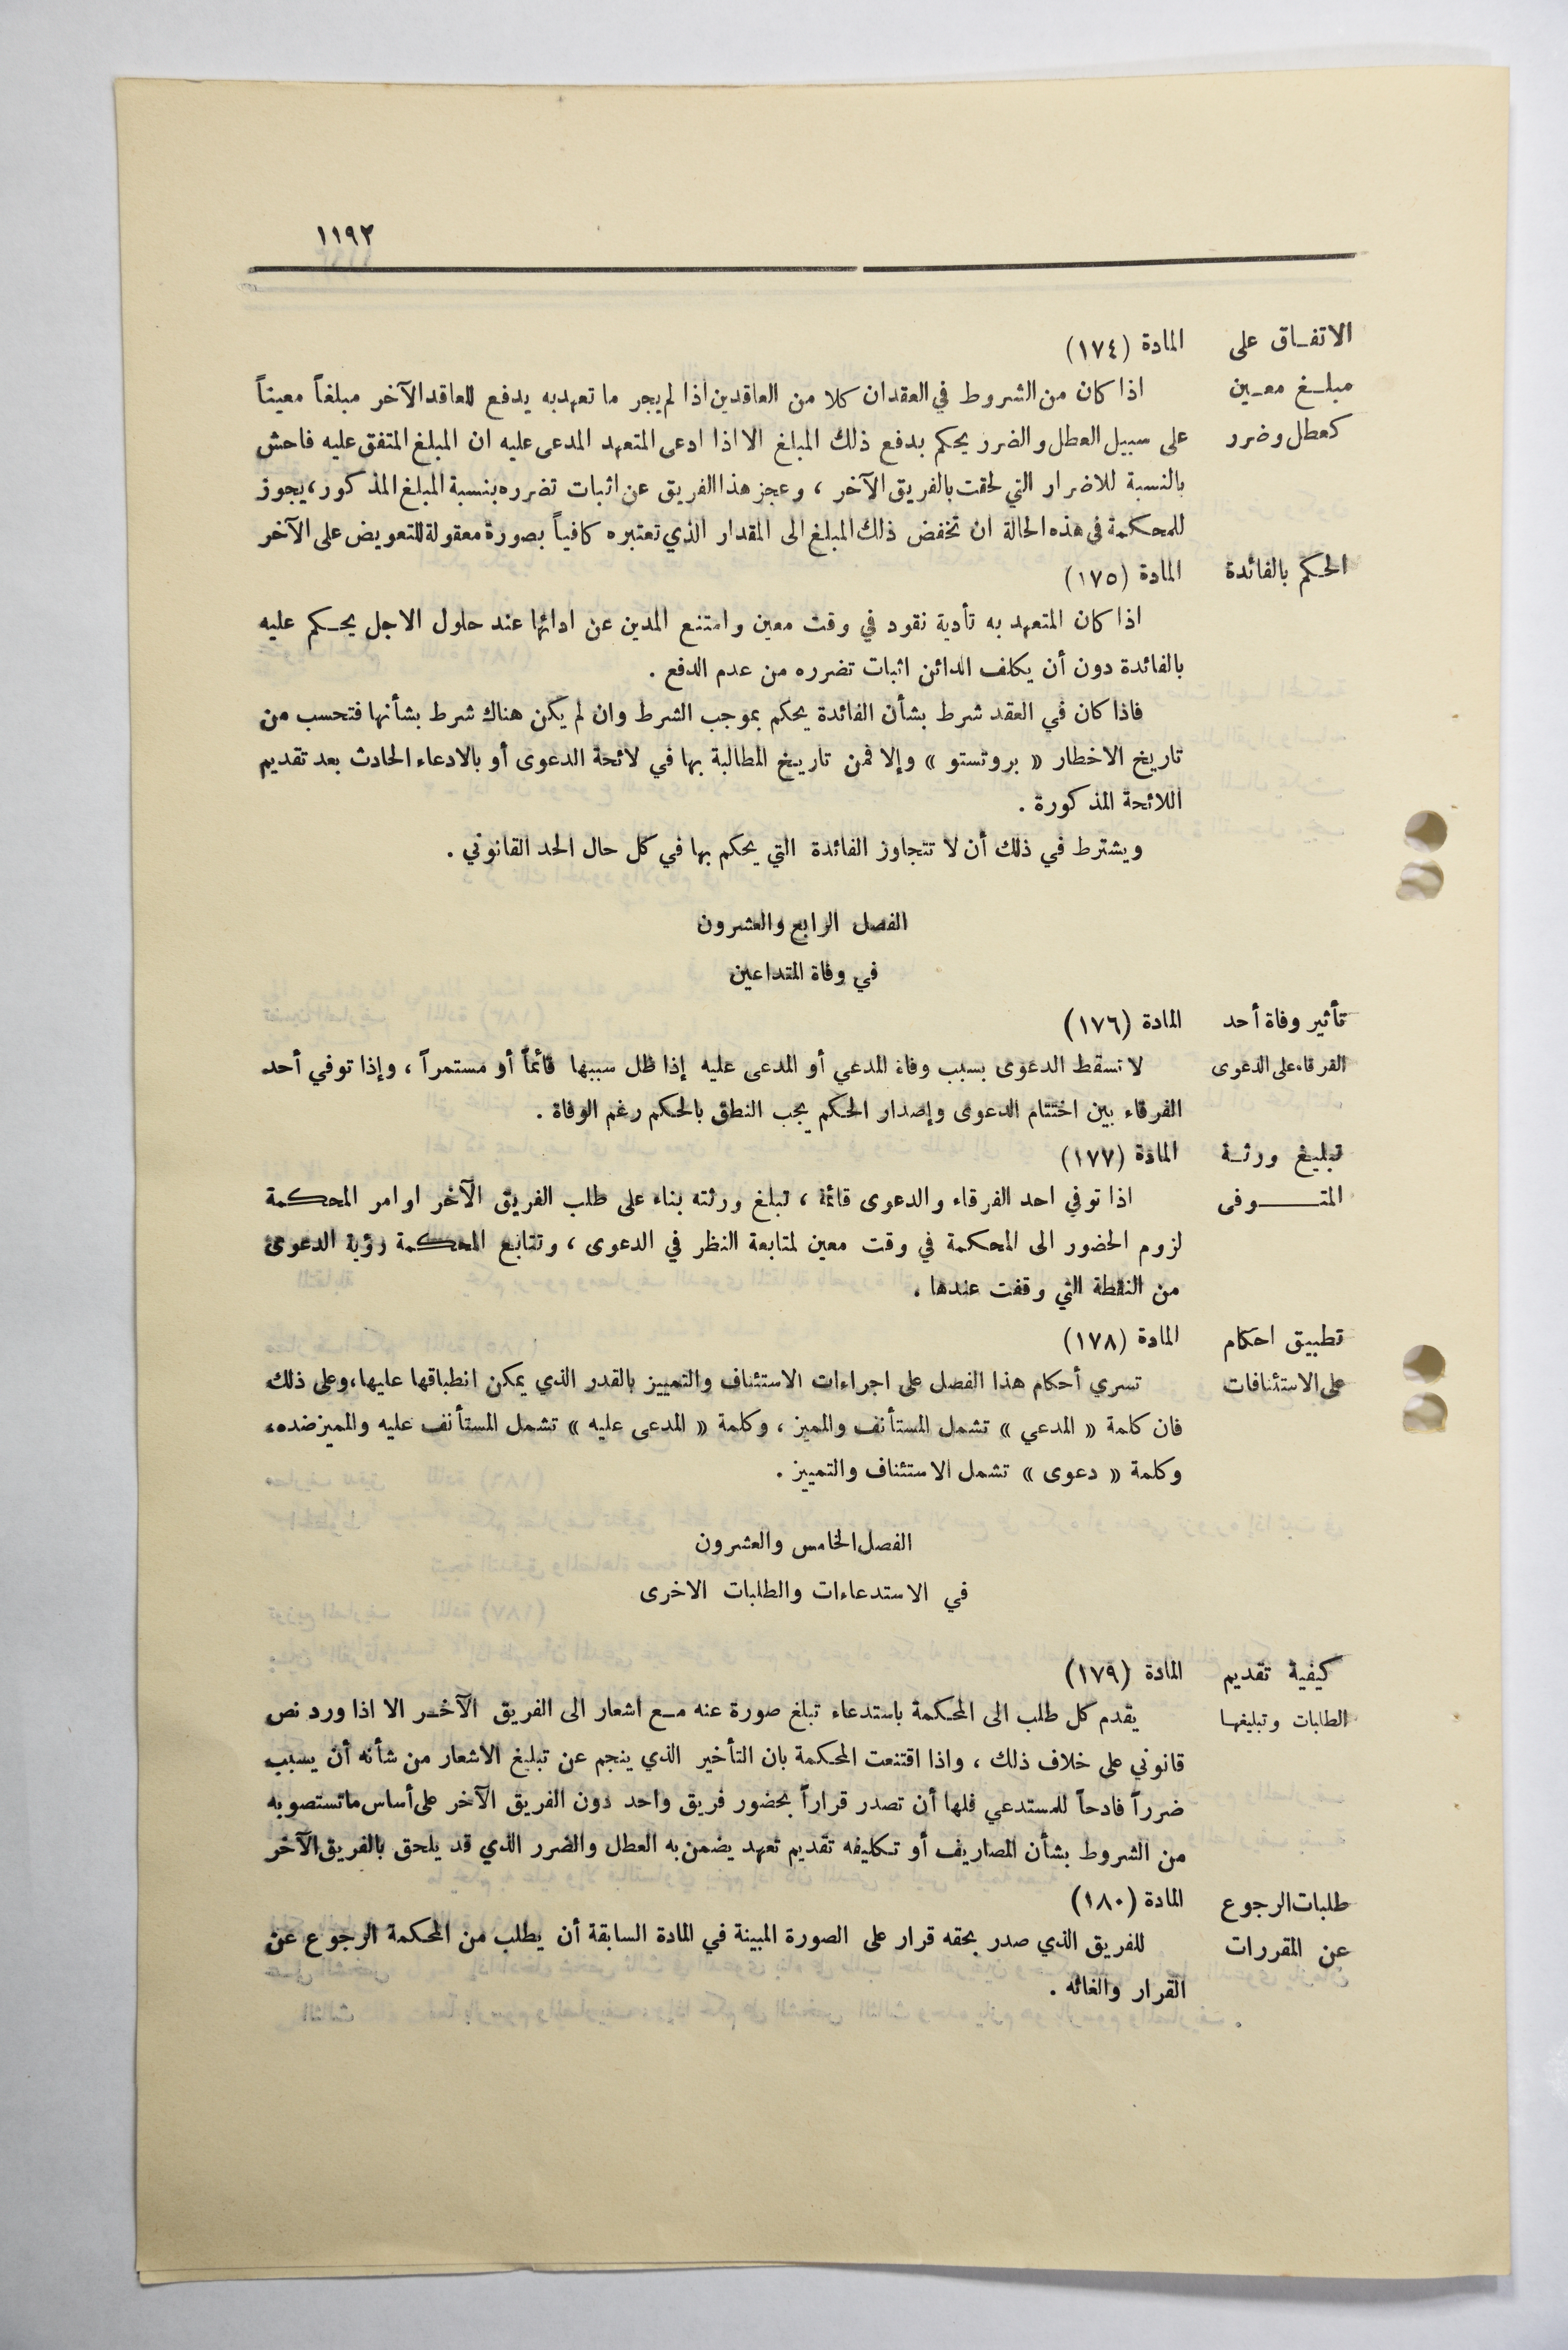 ١١٩٢
الاتفاق على
مبلغ معين
كعطل وضرر
المادة (١٧٤)
اذا كان من الشروط في العقد ان كلا من العاقدين اذا لم يجر ما تعهد به يدفع للعاقد الآخر مبلغاً معيناً
على سبيل العطل والضرر يحكم بدفع ذلك المبلغ الا اذا ادعى المتعهد المدعى عليه ان المبلغ المتفق عليه فاحش
بالنسبة للاضرار التي لحقت بالفريق الآخر ، وعجز هذا الفريق عن اثبات تضرره بنسبة المبلغ المذكور، يجوز
للمحكمة في هذه الحالة ان تخفض ذلك المبلغ الى المقدار الذي تعتبره كافياً بصورة معقولة للتعويض على الآخر
الحكم بالفائدة
المادة (١٧٥)
اذا كان المتعهد به تأدية نقود في وقت معين وامتنع المدين عن ادائها عند حلول الاجل يحكم عليه
بالفائدة دون أن يكلف الدائن اثبات تضرره من عدم الدفع .
فاذا كان في العقد شرط بشأن الفائدة يحكم بموجب الشرط وان لم يكن هناك شرط بشأنها فتحسب من
تاريخ الاخطار « بروتستو » وإلا فمن تاريخ المطالبة بها في لائحة الدعوى أو بالادعاء الحادث بعد تقديم
اللائحة المذكورة .
ويشترط في ذلك أن لا تتجاوز الفائدة التي يحكم بها في كل حال الحد القانوني .
الفصل الرابع والعشرون
في وفاة المتداعين
تأثير وفاة أحد
الفرقاء على الدعوى
المادة (١٧٦)
لا تسقط الدعوى بسبب وفاة المدعي أو المدعى عليه إذا ظل سببها قائماً أو مستمراً ، وإذا توفي أحد
الفرقاء بين اختتام الدعوى وإصدار الحكم يجب النطق بالحكم رغم الوفاة .
تبليغ ورثة
المتوفى
المادة (١٧٧)
اذا توفي احد الفرقاء والدعوى قائمة ، تبلغ ورثته بناء على طلب الفريق الآخر او امر المحكمة
لزوم الحضور الى المحكمة في وقت معين لمتابعة النظر في الدعوى ، وتتابع المحكمة رؤية الدعوى
من النقطة التي وقفت عندها .
تطبيق احكام
على الاستئنافات
المادة (١٧٨)
تسري أحكام هذا الفصل على اجراءات الاستئناف والتمييز بالقدر الذي يمكن انطباقها عليها، وعلى ذلك
فان كلمة « المدعي » تشمل المستأنف والمميز ، وكلمة « المدعى عليه » تشمل المستأنف عليه والمميز ضده،
وكلمة « دعوى » تشمل الاستئناف والتمييز .
الفصل الخامس والعشرون
في الاستدعاءات والطلبات الاخرى
كيفية تقديم
الطلبات وتبليغها
المادة (١٧٩)
يقدم كل طلب الى المحكمة باستدعاء تبلغ صورة عنه مع اشعار الى الفريق الآخر الا اذا ورد نص
قانوني على خلاف ذلك ، واذا اقتنعت المحكمة بان التأخير الذي ينجم عن تبليغ الاشعار من شأنه أن يسبب
ضرراً فادحاً للمستدعي فلها أن تصدر قراراً بحضور فريق واحد دون الفريق الآخر على أساس ما تستصوبه
من الشروط بشأن المصاريف أو تكليفه تقديم تعهد يضمن به العطل والضرر الذي قد يلحق بالفريق الآخر
طلبات الرجوع
عن المقررات
المادة (١٨٠)
للفريق الذي صدر بحقه قرار على الصورة المبينة في المادة السابقة أن يطلب من المحكمة الرجوع عن
القرار والغائه .